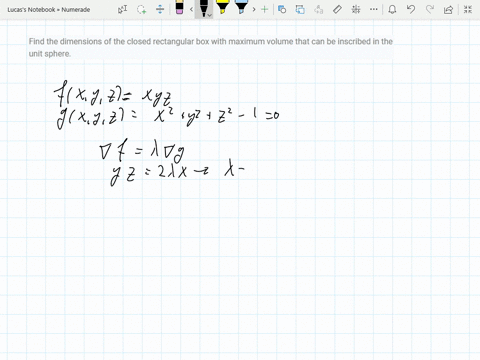 Lucas's Notebook + Numerade
Find the dimensions of the closed rectangular box with maximum volume that can be inscribed in the
unit sphere.
f(x,y,z) = xyz
g(x,y,z) = x² + y² + z² - 1 = 0
∇f = λ∇g
yz = 2λx → λ -